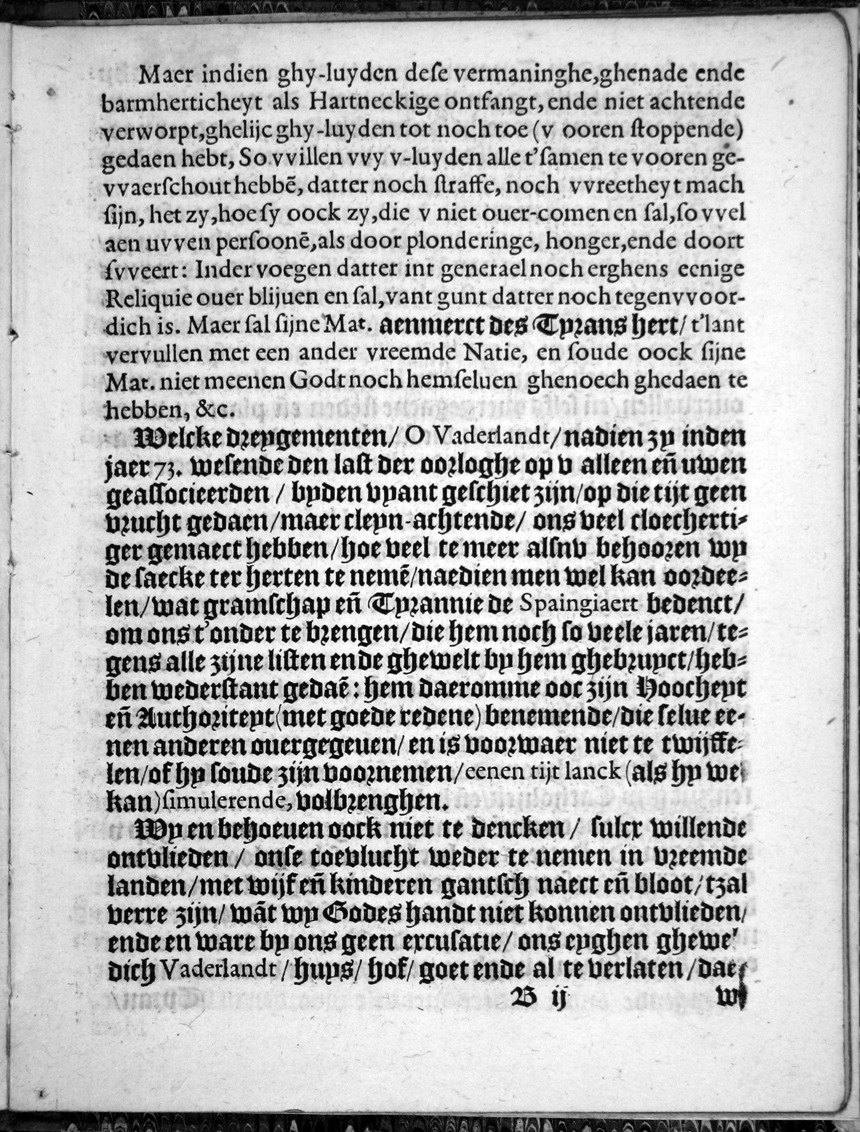 Maer indien ghy-luyden dese vermaninghe,ghenade ende
barmherticheyt als Hartneckige ontfangt, ende niet achtende
verworpt,ghelijc ghy-luyden tot noch toe (v ooren stoppende)
gedaen hebt, So vvillen vvy v-luyden alle t'samen te vooren ge-
vvaerschout hebbē, datter noch straffe, noch vvreetheyt mach
sijn, het zy,hoe sy oock zy,die v niet ouer-comen en sal,so vvel
aen uvven persoonē,als door plonderinge, honger,ende doort
svveert: Inder voegen datter int generael noch erghens eenige
Reliquie ouer blijuen en sal,vant gunt datter noch tegenvvoor-
dich is. Maer sal sijne Mat. aenmerct des Tyrans hert/ t'lant
vervullen met een ander vreemde Natie, en soude oock sijne
Mat. niet meenen Godt noch hemseluen ghenoech ghedaen te
hebben, &c.
Welcke dreygementen/ O Vaderlandt/ nadien zy inden
jaer 73. wesende den last der oorloghe op v alleen eñ uwen
geassocieerden / byden vyant geschiet zijn/op die tijt geen
vrucht gedaen/maer cleyn-achtende/ ons veel cloecherti-
ger gemaect hebben/hoe veel te meer alsnv behooren wy
de saecke ter herten te nemē/naedien men wel kan oordee-
len/wat gramschap eñ Tyrannie de Spaingiaert bedenct/
om ons t'onder te brengen/die hem noch so veele jaren/te-
gens alle zijne listen ende ghewelt by hem ghebruyct/heb-
ben wederstant gedaē: hem daeromme ooc zijn Hoocheyt
eñ Authoriteyt(met goede redene) benemende/die selue ee-
nen anderen ouergegeuen/ en is voorwaer niet te twijffe-
len/of hy soude zijn voornemen/eenen tijt lanck (als hy we
kan)simulerende, volbrenghen.
Wy en behoeuen oock niet te dencken / sulcx willende
ontvlieden / onse toevlucht weder te nemen in vreemde
landen/met wijf eñ kinderen gantsch naect eñ bloot/tzal
verre zijn/ wāt wy Godes handt niet konnen ontvlieden/
ende en ware by ons geen excusatie/ ons eyghen ghewe'
dich Vaderlandt / huys/ hof/ goet ende al te verlaten /daer
B ij w